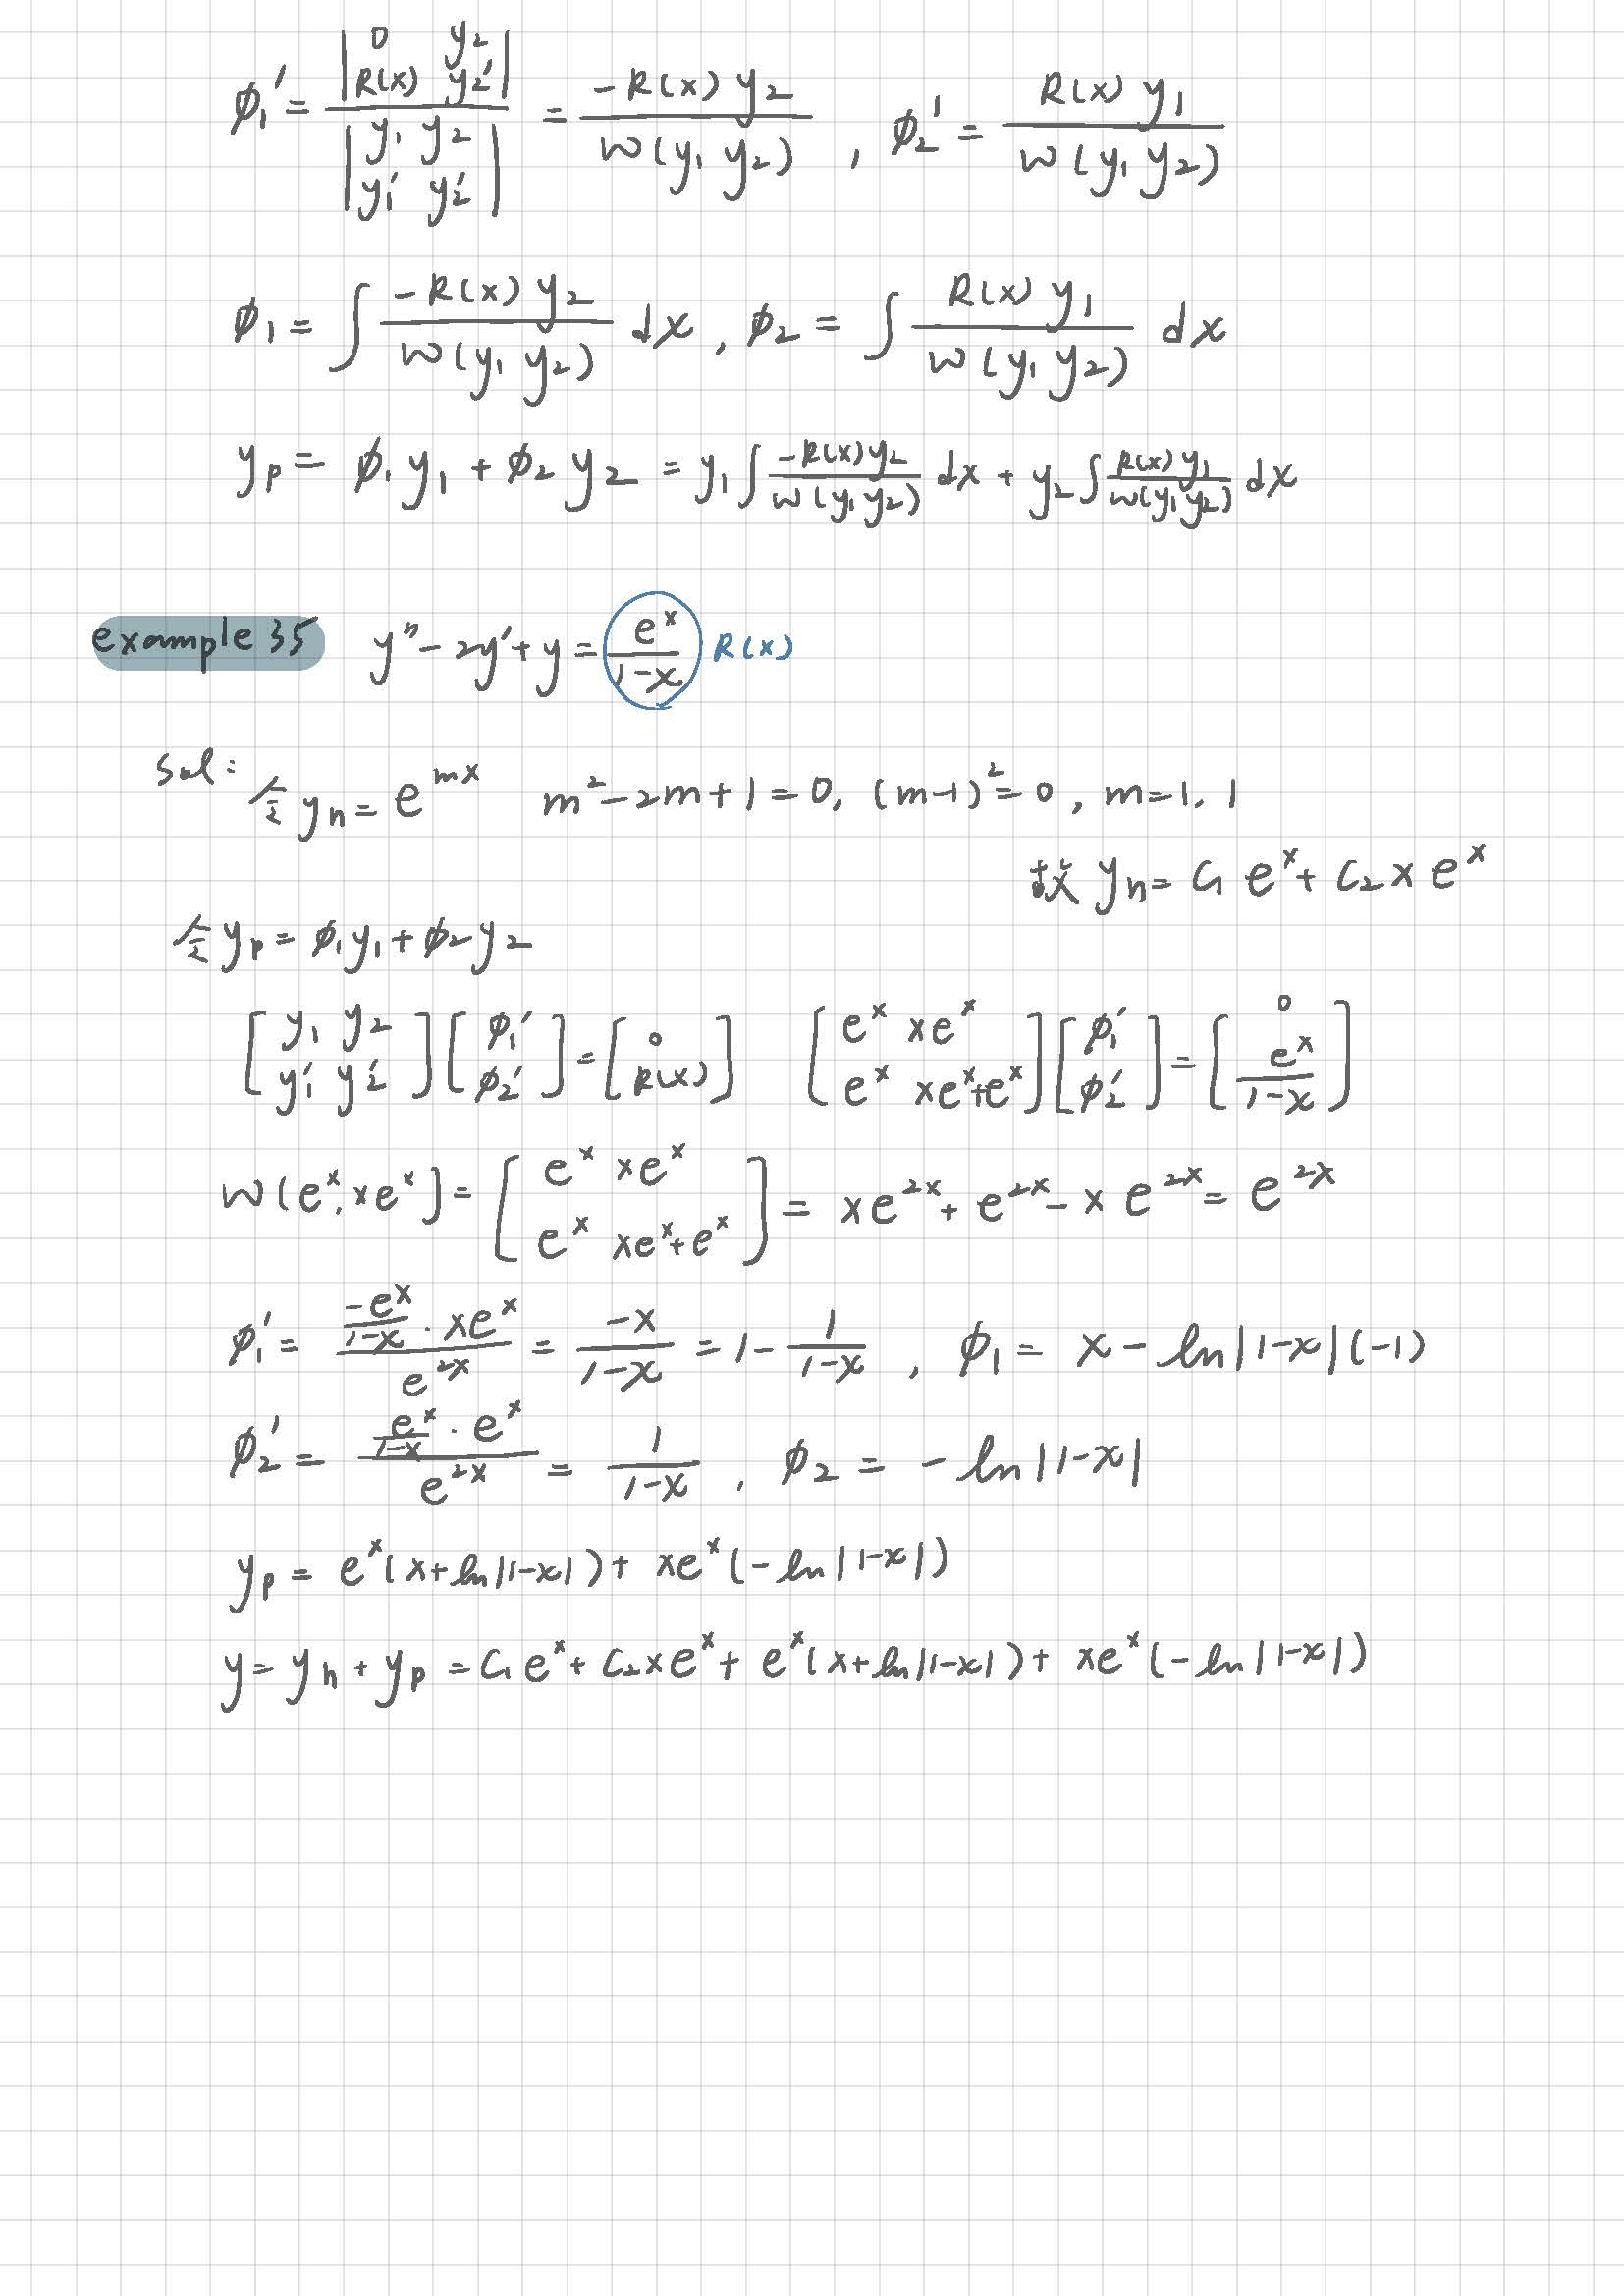 φ₁' = |0 y₂; R(x) y₂'| / |y₁ y₂; y₁' y₂'| = -R(x)y₂ / W(y₁ y₂) , φ₂' = R(x)y₁ / W(y₁ y₂)
φ₁ = ∫ -R(x)y₂ / W(y₁ y₂) dx , φ₂ = ∫ R(x)y₁ / W(y₁ y₂) dx
yₚ = φ₁y₁ + φ₂y₂ = y₁ ∫ -R(x)y₂ / W(y₁ y₂) dx + y₂ ∫ R(x)y₁ / W(y₁ y₂) dx
example 35 y'' - 2y' + y = eˣ / (1-x) R(x)
sol: 令 yₕ = e^{mx} m² - 2m + 1 = 0, (m-1)² = 0, m = 1, 1
故 yₕ = C₁eˣ + C₂xeˣ
令 yₚ = φ₁y₁ + φ₂y₂
[y₁ y₂; y₁' y₂'] [φ₁'; φ₂'] = [0; R(x)] [eˣ xeˣ; eˣ xeˣ+eˣ] [φ₁'; φ₂'] = [0; eˣ/(1-x)]
W(eˣ, xeˣ) = [eˣ xeˣ; eˣ xeˣ+eˣ] = xe^{2x} + e^{2x} - xe^{2x} = e^{2x}
φ₁' = (-eˣ/(1-x) · xeˣ) / e^{2x} = -x / (1-x) = 1 - 1/(1-x) , φ₁ = x - ln|1-x|(-1)
φ₂' = (eˣ/(1-x) · eˣ) / e^{2x} = 1 / (1-x) , φ₂ = -ln|1-x|
yₚ = eˣ(x + ln|1-x|) + xeˣ(-ln|1-x|)
y = yₕ + yₚ = C₁eˣ + C₂xeˣ + eˣ(x + ln|1-x|) + xeˣ(-ln|1-x|)